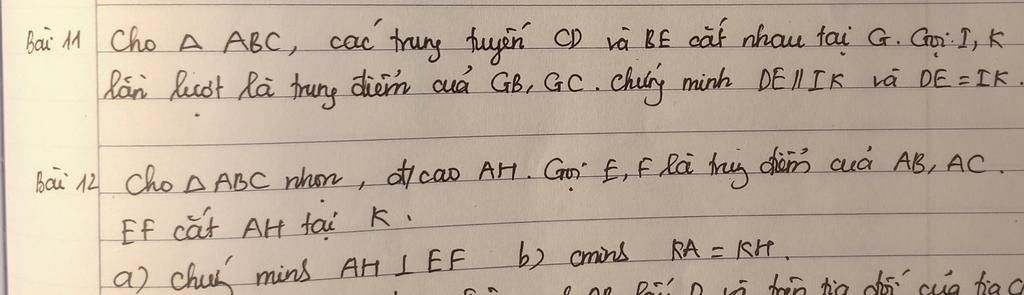 Bài 11 Cho Δ ABC, các trung tuyến CD và BE cắt nhau tại G. Gọi I, K
lần lượt là trung điểm cuả GB, GC. Chứng minh DE // IK và DE = IK.
Bài 12 Cho Δ ABC nhọn, đ/cao AH. Gọi E, F là trug điểm cuả AB, AC.
EF cắt AH tại K.
a) chứg minh AH ⊥ EF b) cminh KA = KH.
trên tia đối của tia